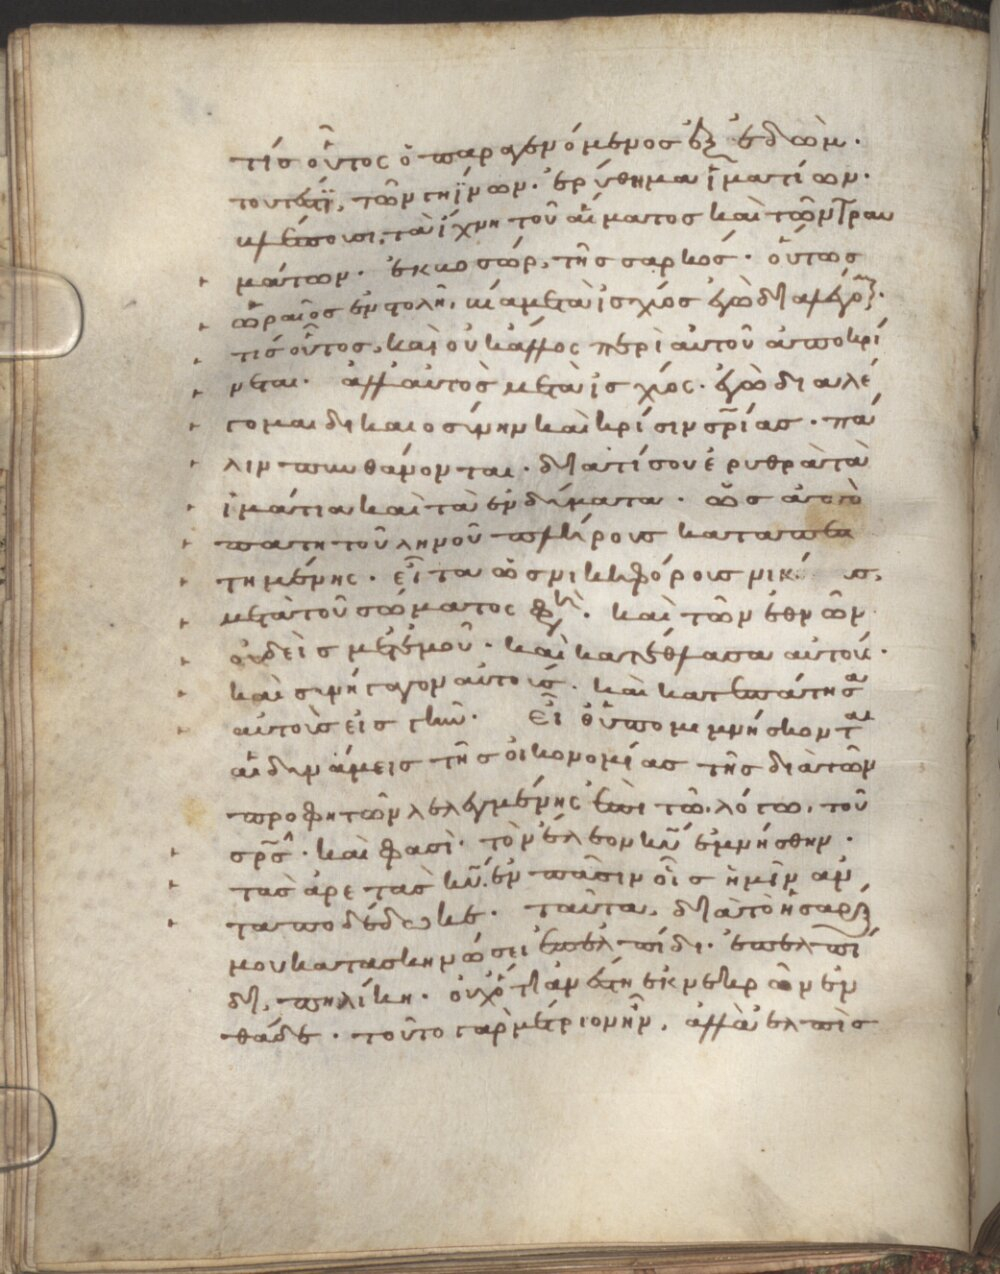 τίς οὗτος ὁ παραγενόμενος ἐξ ἐδώμ.
τουτέστι, τῶν γηΐνων. ἐρύθημα ἱματίων.
βλέπουσι, τὰ ἴχνη τοῦ αἵματος καὶ τῶν τραυ
μάτων. ἐκ βοσώρ, τῆς σαρκός. οὕτως
ὡραῖος ἐν στολῆ, βία μετὰ ἰσχύος ἐγὼ διαλέγομ.
τίς οὗτος, καὶ οὐκ ἄλλος περὶ αὐτοῦ ἀποκρί
νεται. ἀλλ αὐτὸς μετὰ ἰσχύος. ἐγὼ διαλέ
γομαι δικαιοσύνην καὶ κρίσιν σρίας. πά
λιν πυνθάνονται. διατί σου ἐρυθρὰ τὰ
ἱμάτια καὶ τὰ ἐνδύματα. ὡς ἀπὸ
πατητοῦ ληνοῦ πλήρους καταπεπα
τημένης. εἶτα ὡς νικηφόροις
μετὰ τοῦ σώματος φη. καὶ τῶν ἐθνῶν
οὐδεὶς μετ ἐμοῦ. καὶ κατέθλασα αὐτούς.
καὶ συνήγαγον αὐτοὺς. καὶ κατεπάτησα
αὐτοὺς εἰς γῆν. Εἶθ οὕτω μιμνήσκονται
αἱ δυνάμεις τῆς οἰκονομίας τῆς διὰ τῶν
προφητῶν λελεγμένης ἐπὶ τῶ λόγω, τοῦ
σρς. καὶ φασὶ. τὸν ἔλεον κυ ἐμνήσθην.
τὰς ἀρετὰς κυ. ἐν πᾶσιν οἷς ἡμῖν ἀν
ταποδέδωκε. ταῦτα, διὰ τὸ ἡ σὰρξ
μου κατασκηνώσει ἐπ ἐλπίδι. ἐπ ἐλπί
δι, πηλίκη. οὐχ ὅτι ἀνέστη ἐκ νεκρῶν ἐν
θάδε. τοῦτο γὰρ μέτριον ἦν, ἀλλὰ ἐλπὶς